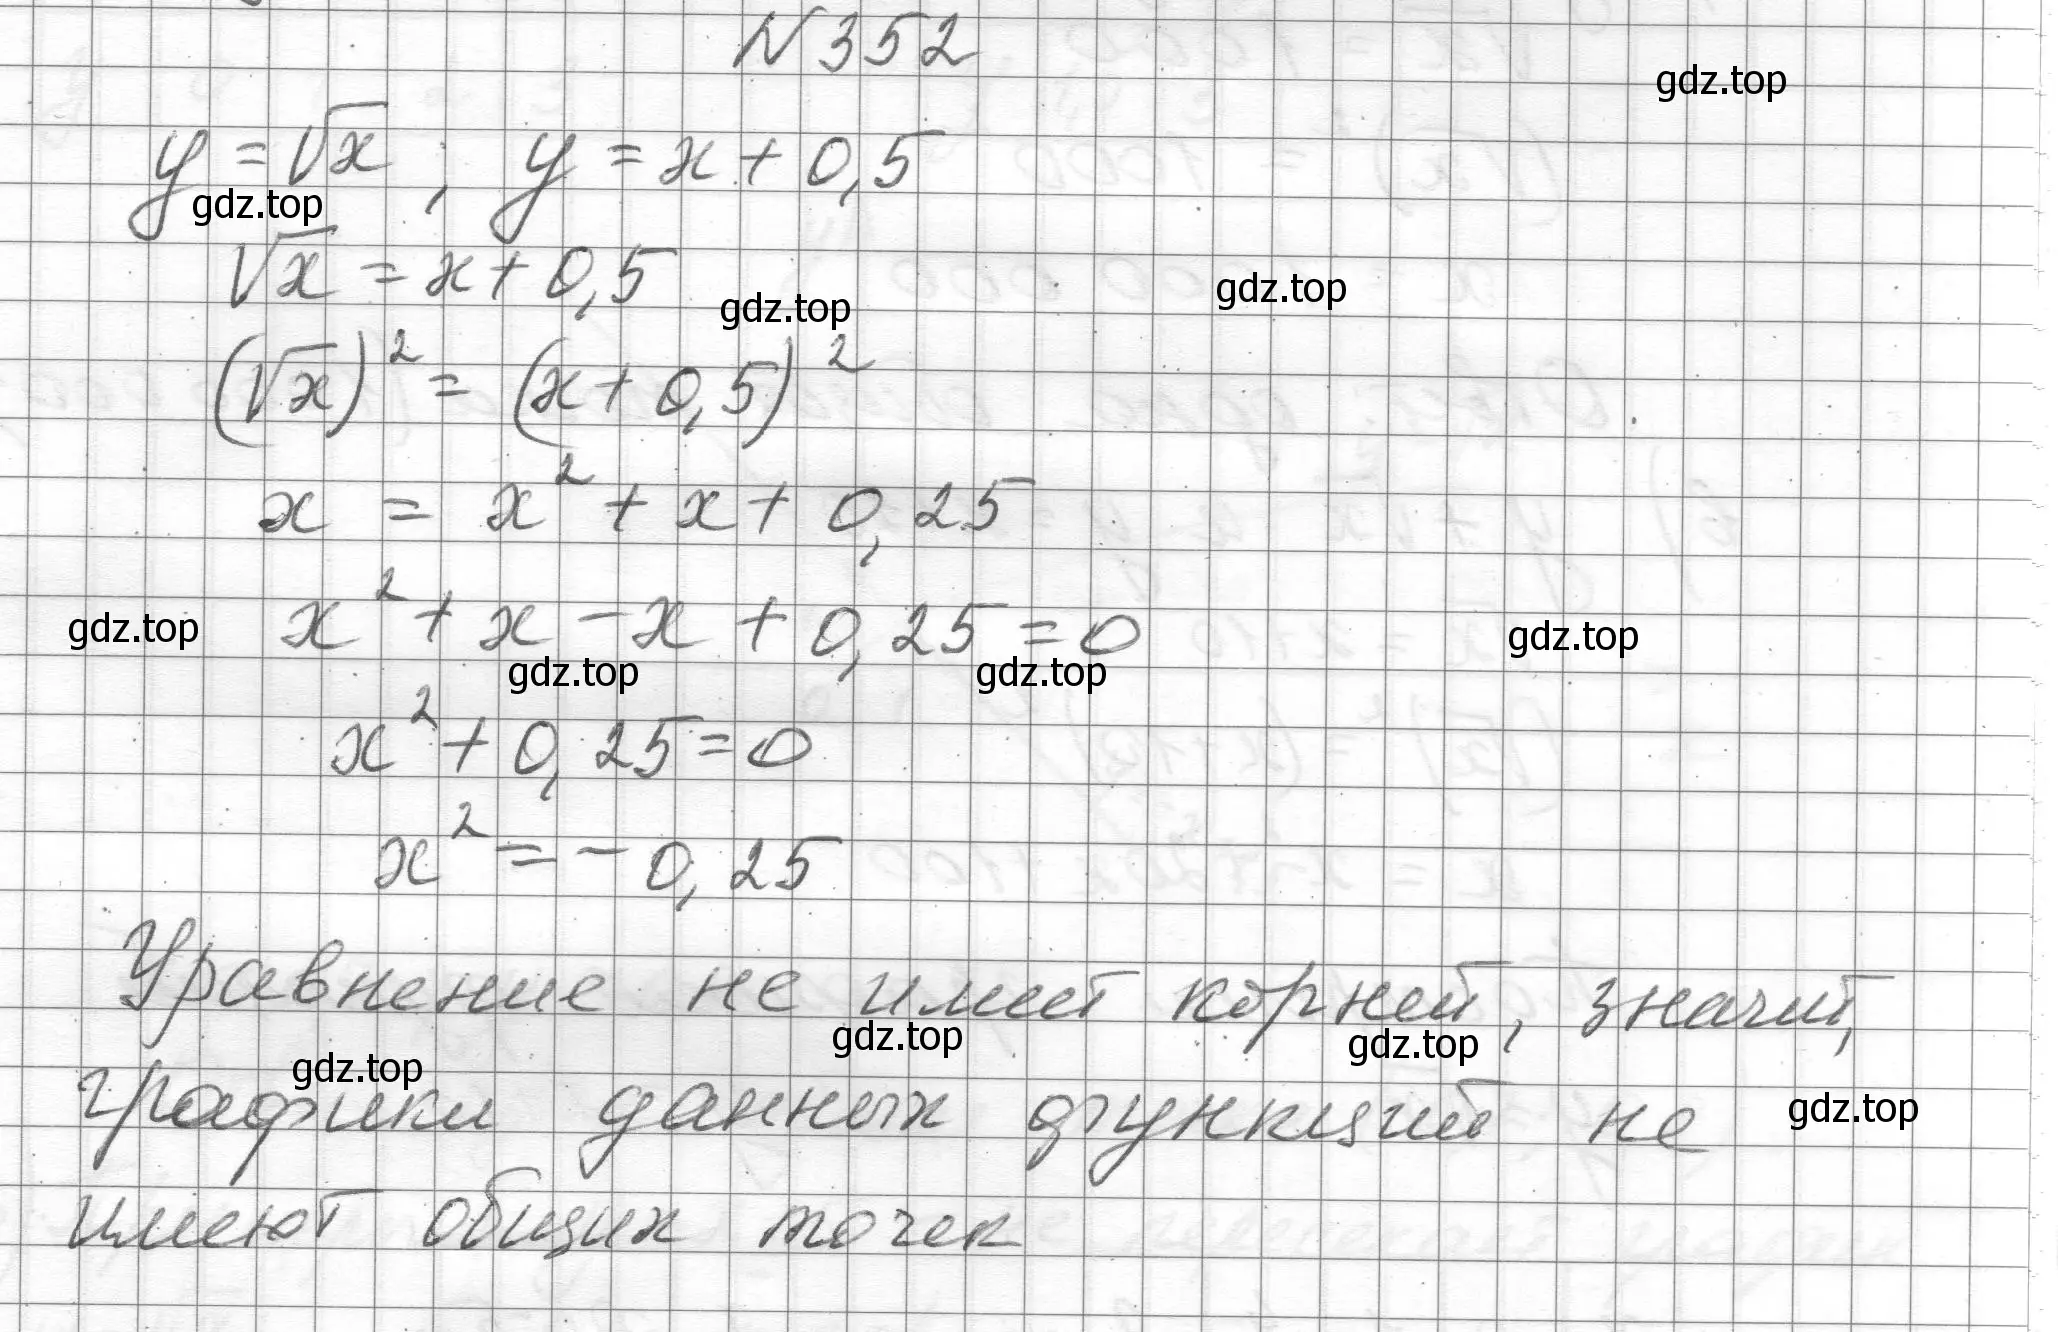 N 352
gdz.top
y = √x, y = x + 0,5
gdz.top
√x = x + 0,5
gdz.top
gdz.top
(√x)² = (x + 0,5)²
x = x² + x + 0,25
x² + x - x + 0,25 = 0
gdz.top
gdz.top
gdz.top
gdz.top
x² + 0,25 = 0
x² = - 0,25
Уравнение не имеет корней, значит,
gdz.top
gdz.top
gdz.top
графики данных функций не
gdz.top
имеют общих точек